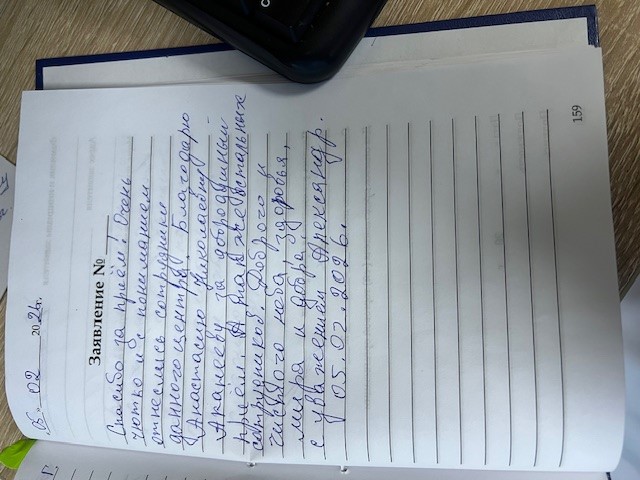 05. 02 2026г.
Заявление №
Спасибо за приём! Очень
чутко и с пониманием
отнеслись сотрудники
данного центра. Благодарю
Анастасию Николаевну
за добродушный
приём. А также остальных
сотрудников. Доброго и
чистого неба, здоровья,
мира и добра.
с уважением Александр.
05.02.2026.
159